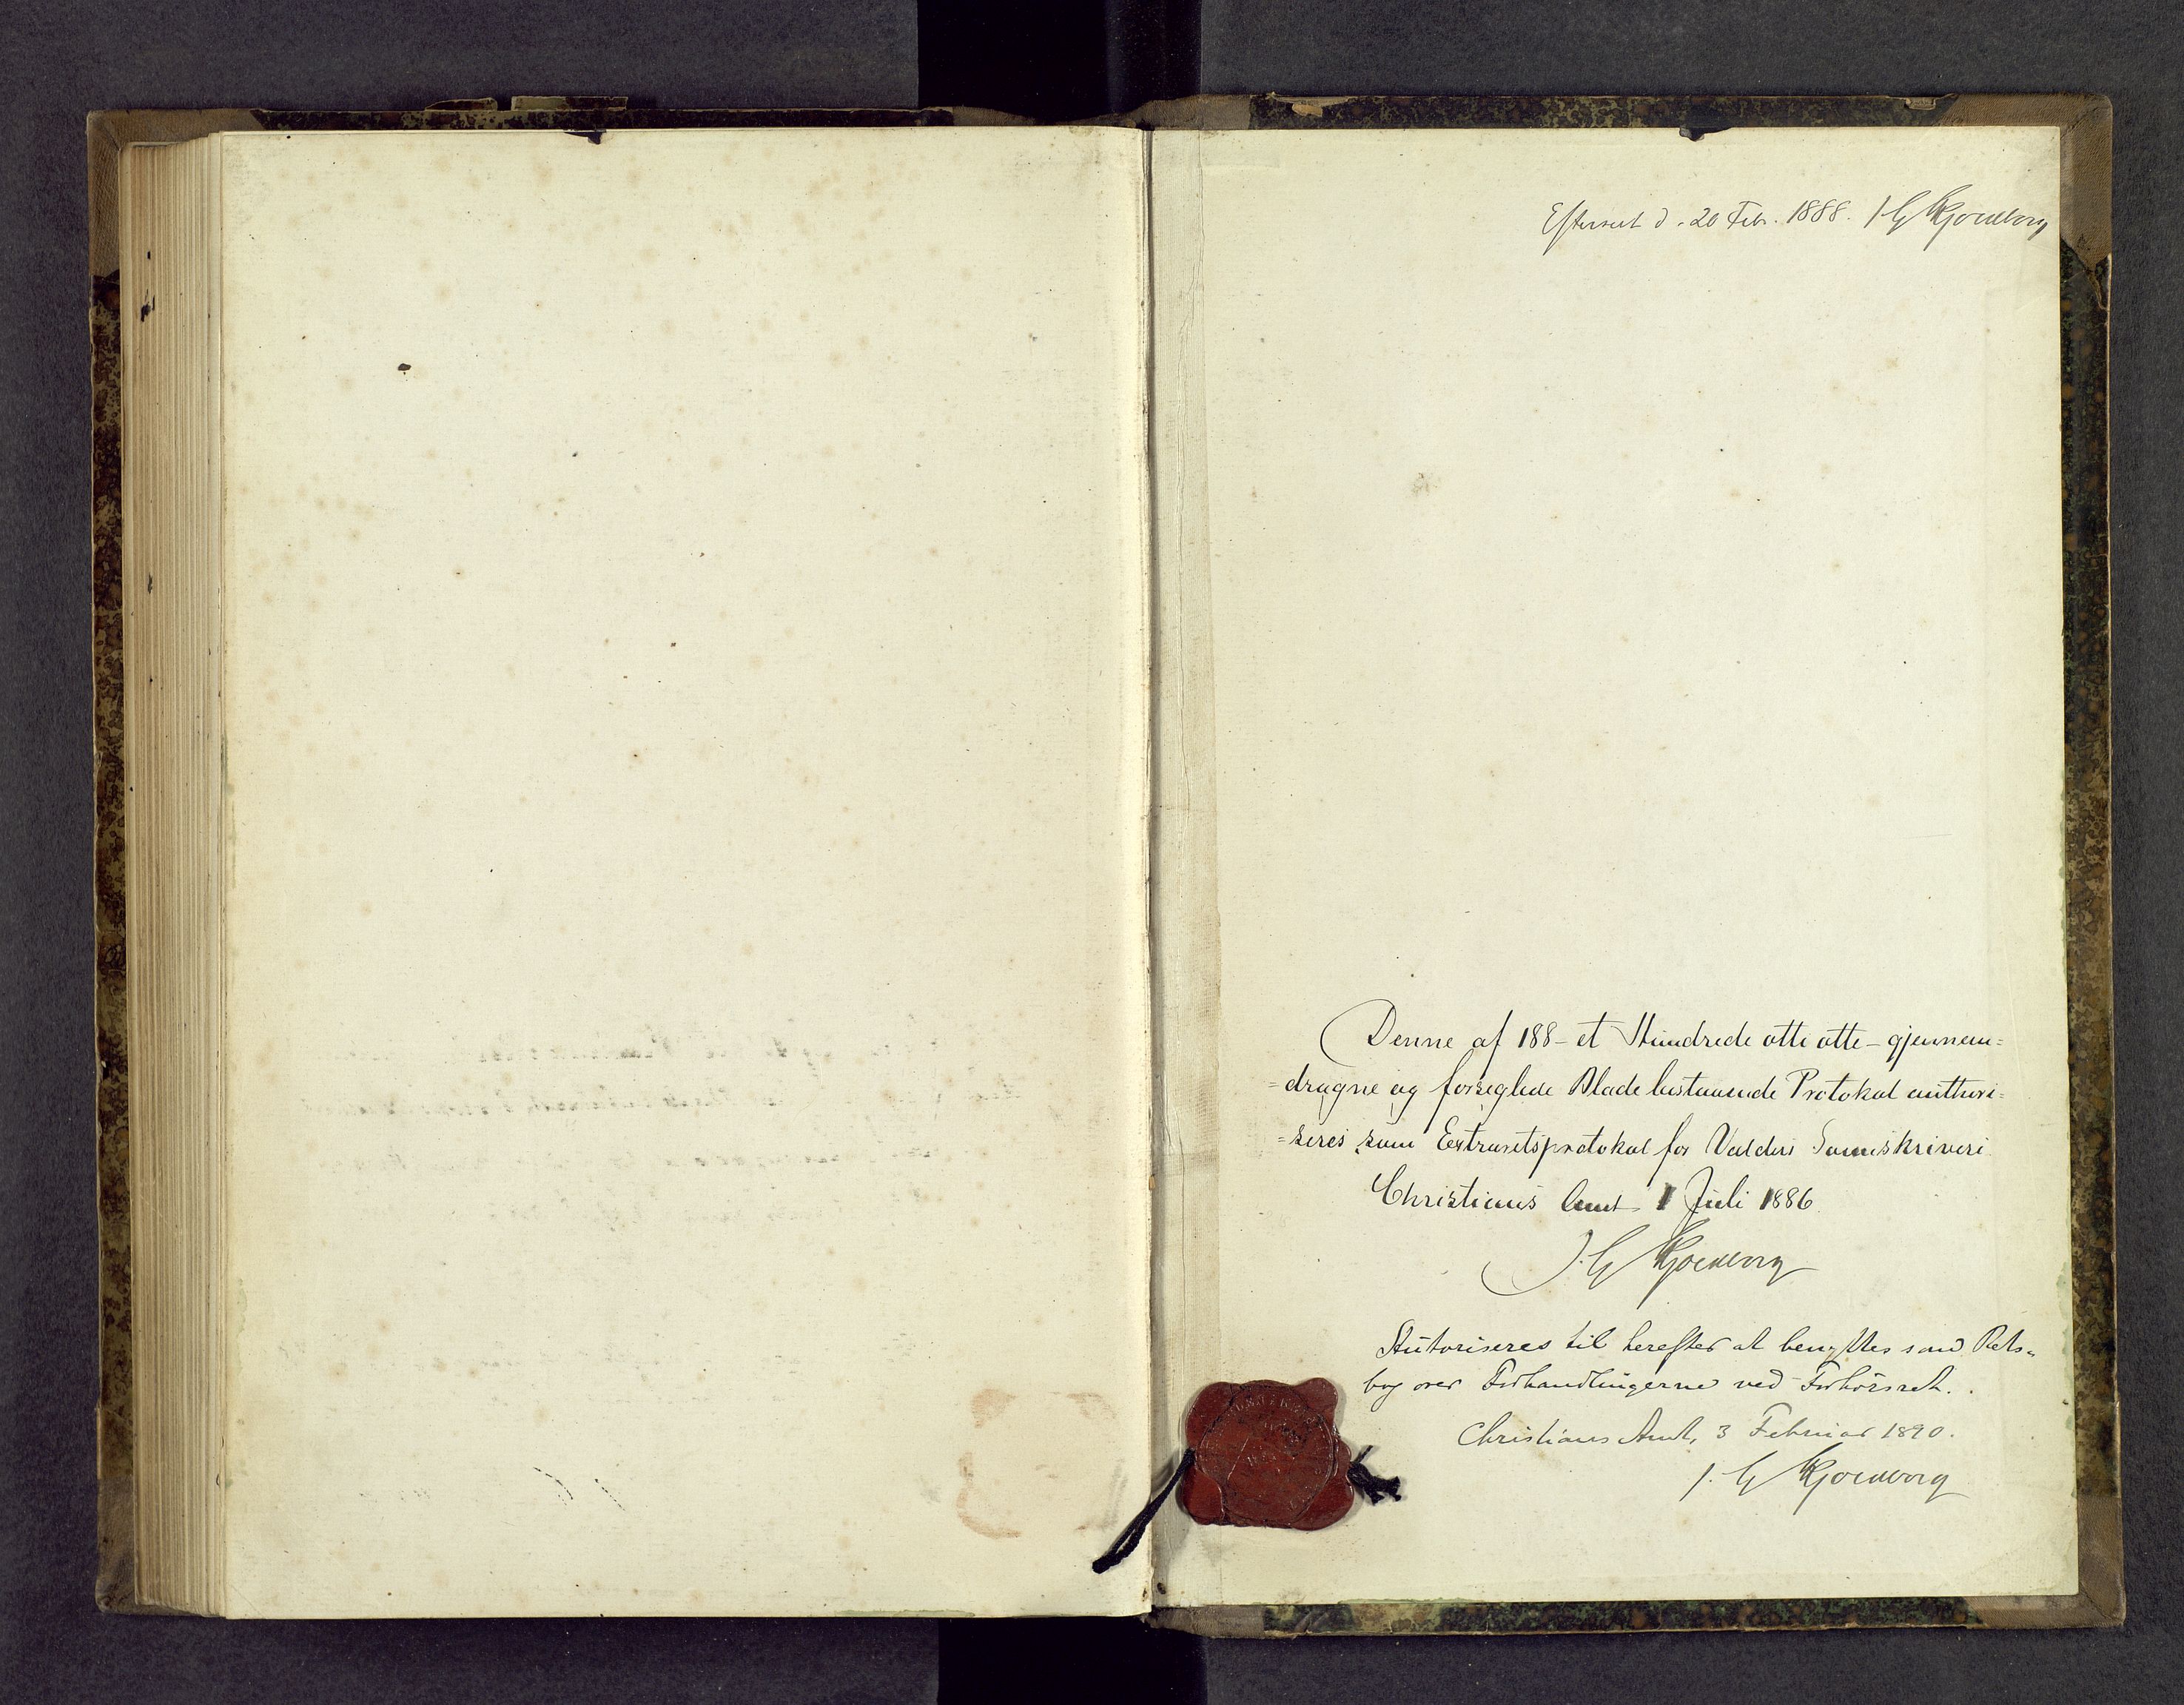 Efterseet d. 20 Feb. 1888. J G Kjoenborg
Denne af 188 - et Hundrede otti otte - gjennem=
=dragne og forseglede Blade bestaaende Protokol authori=
=seres som Extraretsprotokol for Valders Sorenskriveri
Christians Amt 1 Juli 1886
J. G
Autoriseres til herefter at benyttes som Rets-
bog over Forhandlingerne ved Forhörsret.
Christians Amt, 3 Februar 1890.
J. G